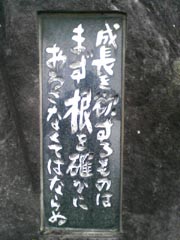 成長を欲するものは
まず根を確かに
おろさなくてはならぬ